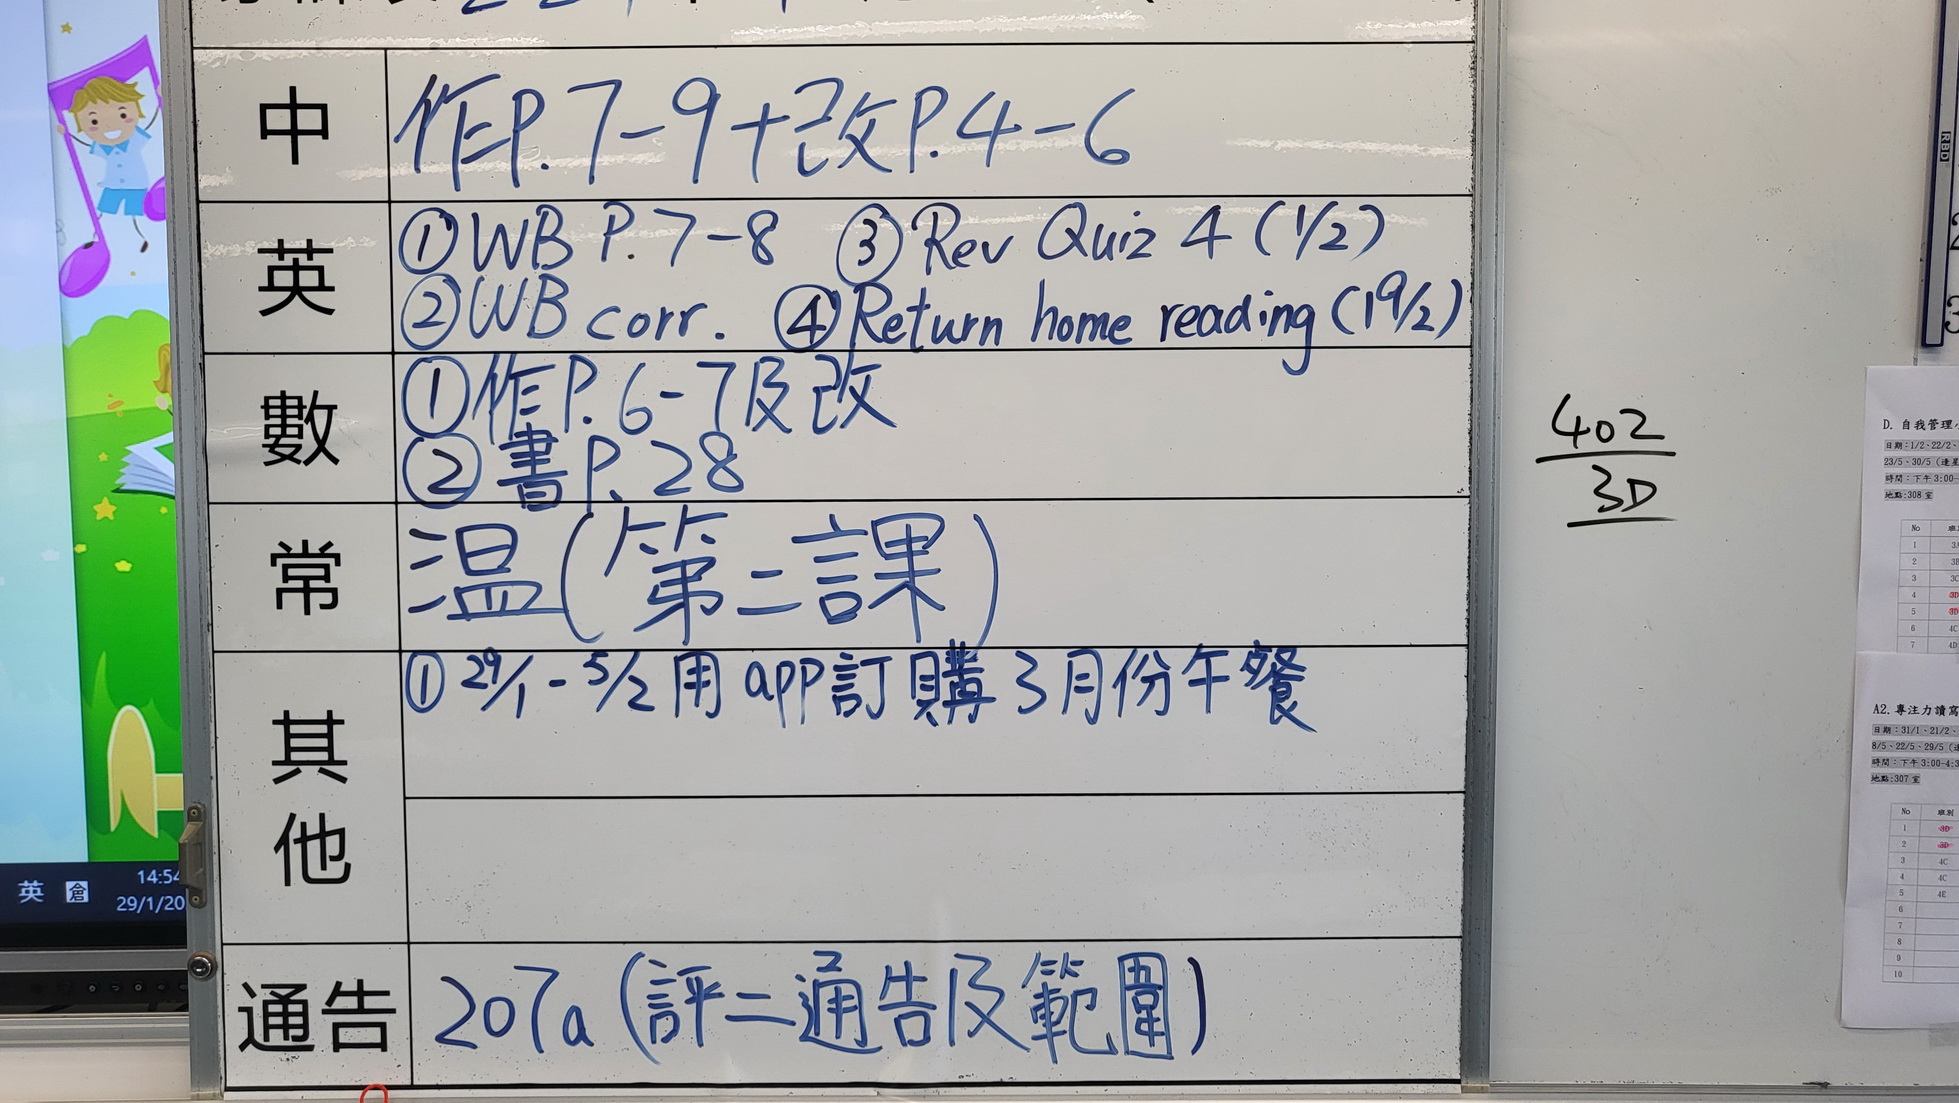 中
作P.7-9+改P.4-6
英
①WB P.7-8 ③Rev Quiz 4 (1/2)
②WB corr. ④Return home reading (19/2)
數
①作P.6-7及改
②書P.28
常
温(第二課)
其他
①29/1-5/2用app訂購3月份午餐
通告
207a(評二通告及範圍)
402
3D
英 倉
14:54
29/1/20
RBD
D. 自我管理
日期:1/2、22/2、
23/5、30/5
時間:下午3:00-
地點:308室
No
1
2
3
4
5
6
7
A2. 專注力讀寫
日期:31/1、21/2、
8/5、22/5、29/5
時間:下午3:00-4:3
地點:307室
No 班別
1 3D
2 3D
3 4C
4 4C
5 4E
6
7
8
9
10